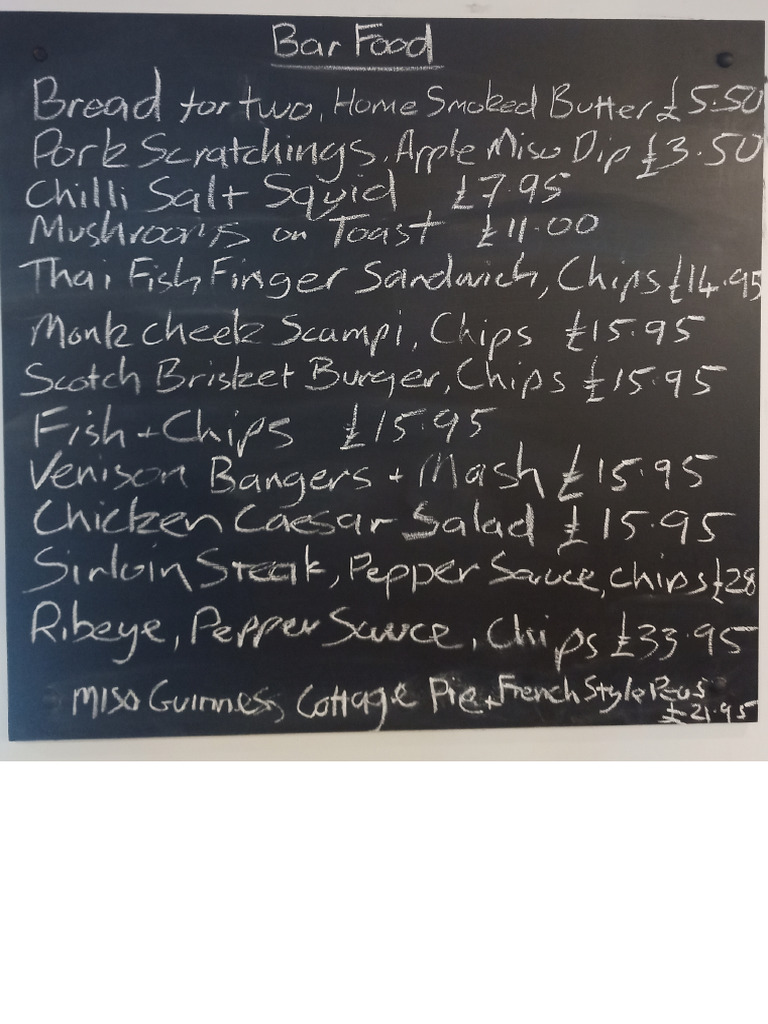 Bar Food
Bread for two, Home Smoked Butter £5.50
Pork Scratchings, Apple Miso Dip £3.50
Chilli Salt Squid £7.95
Mushrooms on Toast £11.00
Thai Fish Finger Sandwich, Chips £14.95
Monk cheek Scampi, Chips £15.95
Scotch Brisket Burger, Chips £15.95
Fish + Chips £15.95
Venison Bangers + Mash £15.95
Chicken Caesar Salad £15.95
Sirloin Steak, Pepper Sauce, chips £28
Ribeye, Pepper Sauce, Chips £33.95
Miso Guinness Cottage Pie + French Style Peas
£21.95